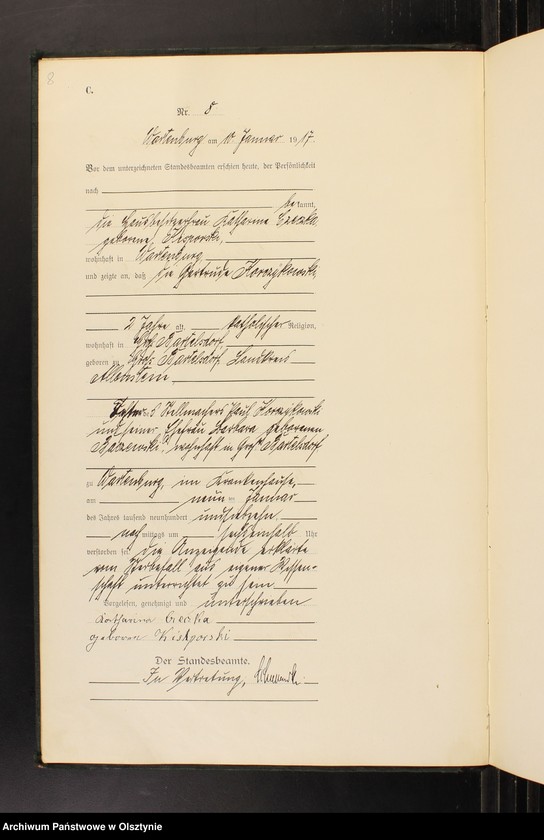 8
C.
Nr. 8
Wartenburg am 10. Januar 1917.
Vor dem unterzeichneten Standesbeamten erschien heute, der Persönlichkeit
nach
bekannt,
die Hausbesitzerfrau Katharina
geborene
wohnhaft in Wartenburg
und zeigte an, daß die Gertrude Koronzikowski
2 Jahre alt, katholischer Religion,
wohnhaft in Groß Bartelsdorf,
geboren zu Groß Bartelsdorf, Landkreis
Allenstein,
Tochter des Stellmachers Paul
und seiner Ehefrau Barbara geborenen
wohnhaft in Groß Bartelsdorf
zu Wartenburg, im Krankenhause,
am neunten Januar
des Jahres tausend neunhundert und siebzehn
nachmittags um sechseinhalb Uhr
verstorben sei. Die Anzeigende erklärte
vom Sterbefall aus eigener Wissen-
schaft unterrichtet zu sein.
Vorgelesen, genehmigt und unterschrieben
Katharina
geboren
Der Standesbeamte.
In Vertretung,
Archiwum Państwowe w Olsztynie